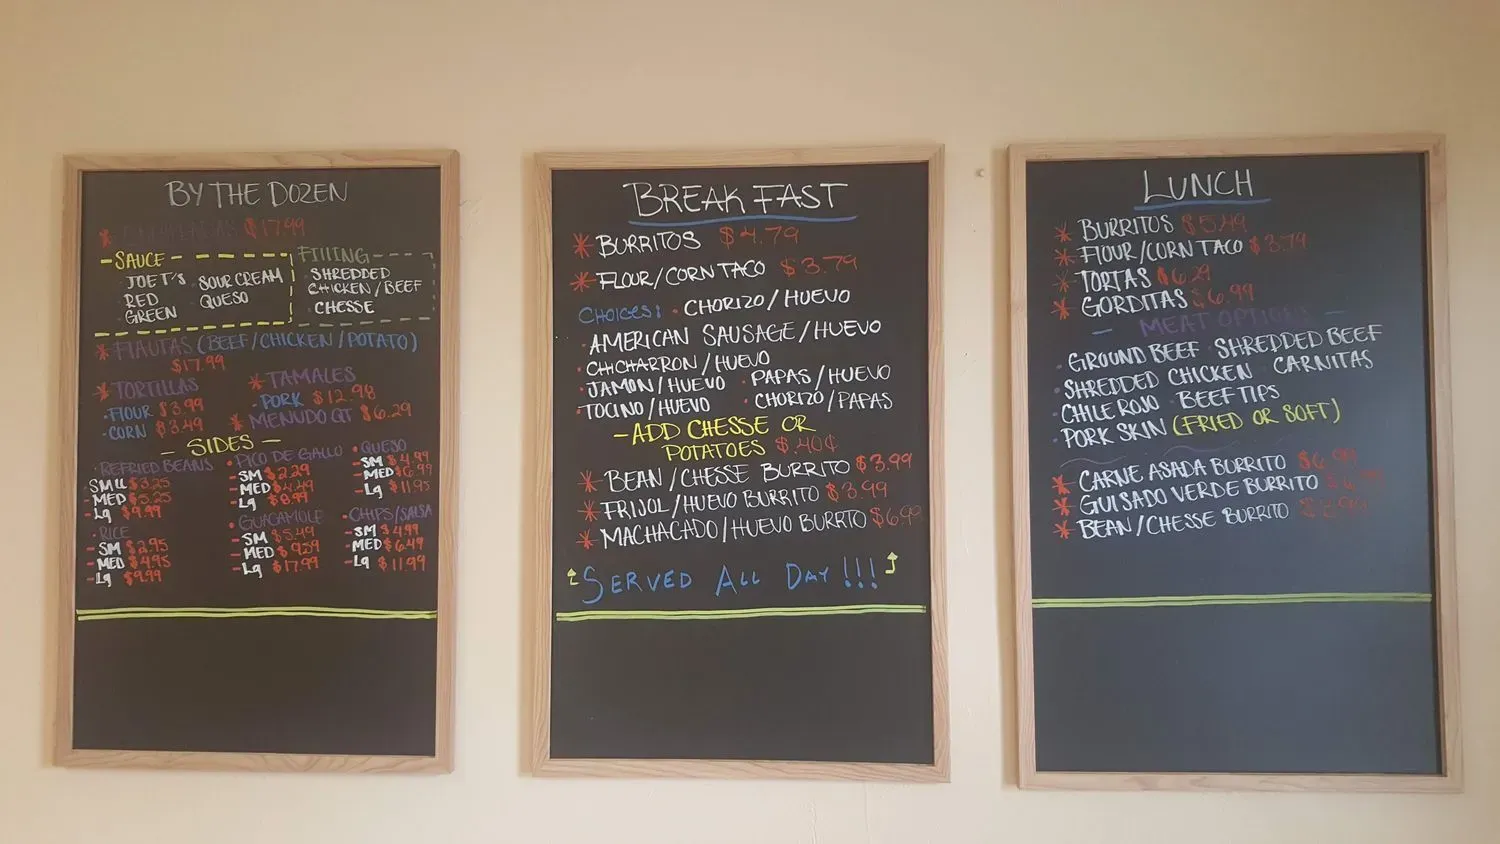 BY THE DOZEN
* $17.99
- SAUCE -
JOE T'S · SOUR CREAM
RED · QUESO
GREEN
FILLING
· SHREDDED
CHICKEN / BEEF
· CHESSE
* FLAUTAS (BEEF/CHICKEN/POTATO)
$17.99
* TORTILLAS
· FLOUR $3.99
· CORN $3.49
* TAMALES
· PORK $12.98
* MENUDO QT $6.29
- SIDES -
· REFRIED BEANS
- SMLL $3.25
- MED $5.25
- Lg $9.99
· PICO DE GALLO
- SM $2.29
- MED $4.49
- Lg $8.99
· QUESO
- SM $4.99
- MED $6.99
- Lg $11.95
· RICE
- SM $2.95
- MED $4.95
- Lg $9.99
· GUACAMOLE
- SM $5.49
- MED $9.29
- Lg $17.99
· CHIPS/SALSA
- SM $4.99
- MED $6.49
- Lg $11.99
BREAKFAST
* BURRITOS $4.79
* FLOUR/CORN TACO $3.79
CHOICES: · CHORIZO/HUEVO
· AMERICAN SAUSAGE/HUEVO
· CHICHARRON/HUEVO
· JAMON/HUEVO · PAPAS/HUEVO
· TOCINO/HUEVO · CHORIZO/PAPAS
- ADD CHESSE OR
POTATOES $.40¢
* BEAN/CHESSE BURRITO $3.99
* FRIJOL/HUEVO BURRITO $3.99
* MACHACADO/HUEVO BURRTO $6.99
SERVED ALL DAY!!!
LUNCH
* BURRITOS $5.49
* FLOUR/CORN TACO $3.79
* TORTAS $6.29
* GORDITAS $6.99
- MEAT OPTIONS -
· GROUND BEEF · SHREDDED BEEF
· SHREDDED CHICKEN · CARNITAS
· CHILE ROJO · BEEF TIPS
· PORK SKIN (FRIED OR SOFT)
* CARNE ASADA BURRITO
* GUISADO VERDE BURRITO
* BEAN/CHESSE BURRITO